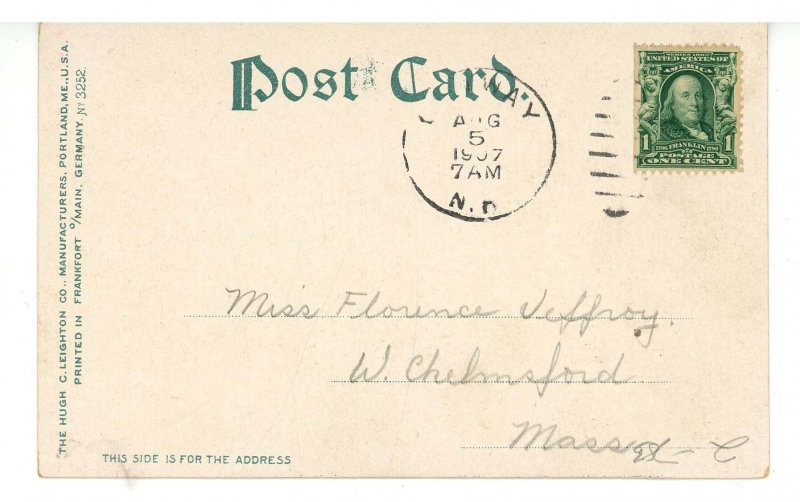 Post Card.
THE HUGH C. LEIGHTON CO., MANUFACTURERS, PORTLAND, ME., U.S.A.
PRINTED IN FRANKFORT O/MAIN, GERMANY. No 3252.
WAY
AUG
5
1907
7AM
N.
SERIES 1902
UNITED STATES OF
AMERICA
1706 FRANKLIN 1790
1 POSTAGE 1
ONE CENT
Miss Florence Jeffroy.
W. Chelmsford
Mass
THIS SIDE IS FOR THE ADDRESS